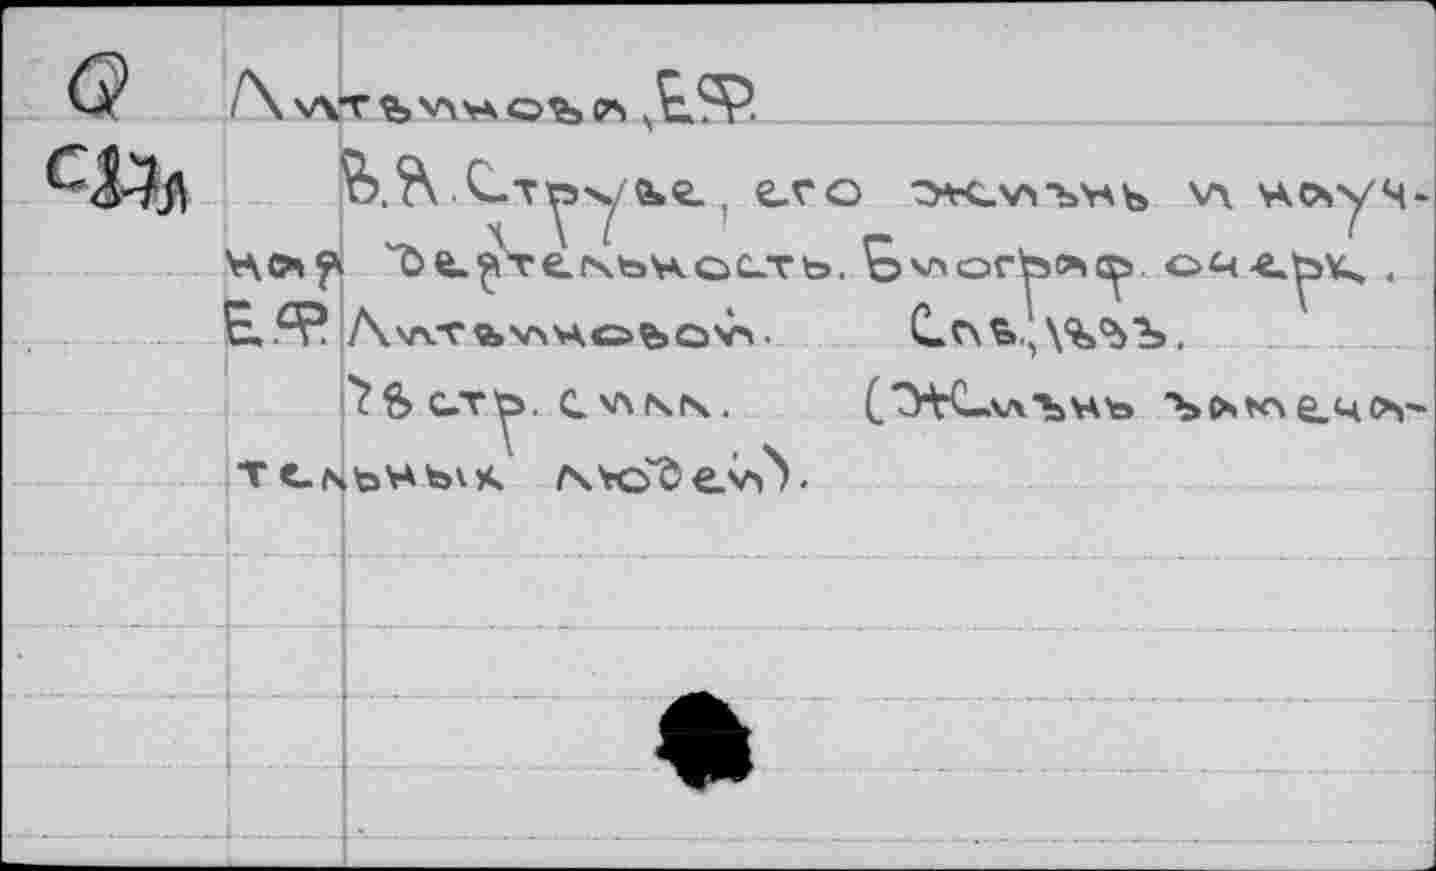 Q Литвинова, Е.Ф.
С87л В.Я. Струве, его жизнь и науч-
ная деятельность. Биограф. очерк.
Е.Ф. Литвиновой. Спб., 1893.
78 стр. с илл. (Жизнь замеча-
тельных людей).